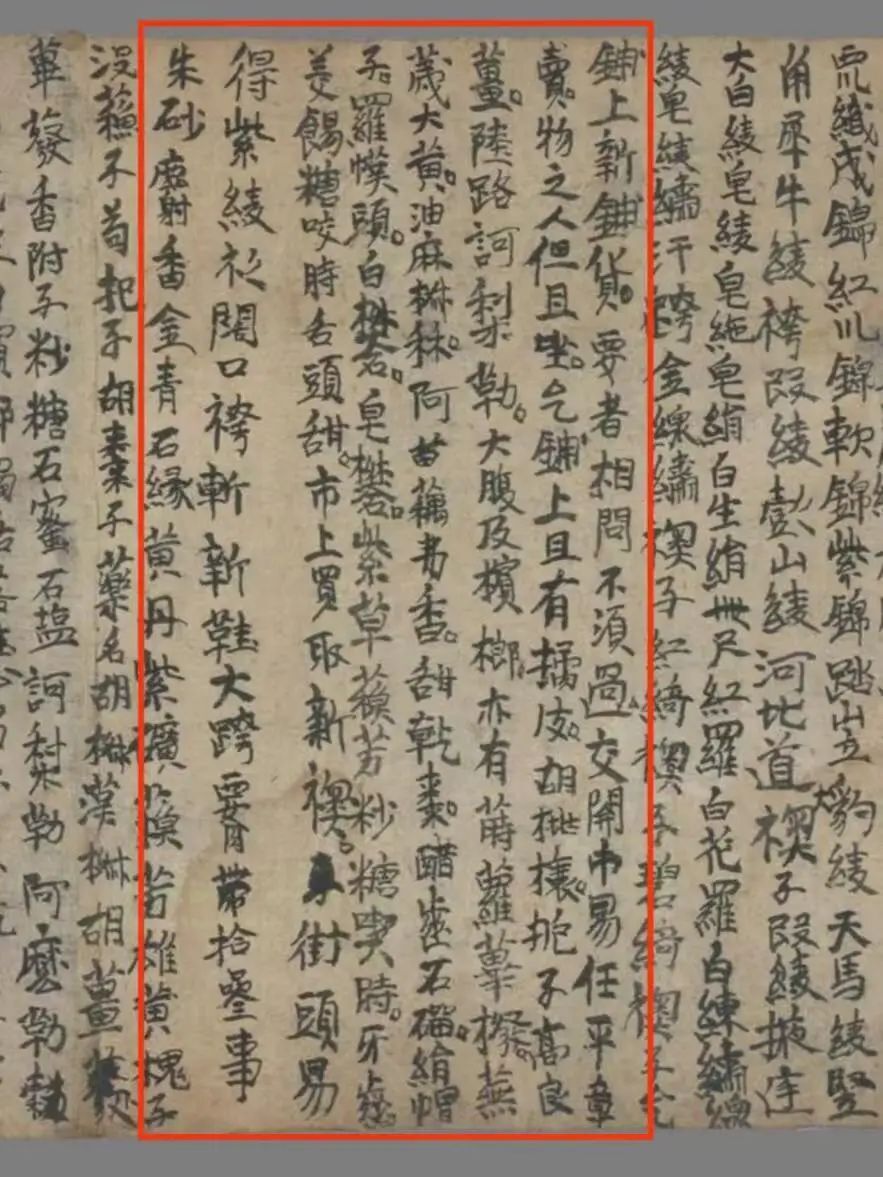 織成錦紅川錦軟錦紫錦踏豹綾天馬綾竪
角犀牛綾袴段綾彭山綾河北道襖子段綾掖
大白綾皂綾皂絁皂絹白生絹卌尺紅羅白花羅白練繡線
綾皂綾繡汗胯金線繡襖子紅綺襖子碧綺襖子
鋪上新鋪貨要者相問不須過交關市易任平章
賣物之人但且坐乞鋪上且有橘皮胡桃瓤梔子高良
薑陸路訶梨勒大腹及檳榔亦有蒔蘿蓽撥蕪
荑大黃油麻椒秫阿苗藕弗香甜乾棗醋齒石榴絹帽
子羅幞頭白礬皂礬紫草蘇芳粆糖喫時牙齒
美餳糖咬時舌頭甜市上買取新襖子街頭易
得紫綾衫闊口袴斬新鞋大跨腰帶拾叄事
朱砂麝香金青石緣黃丹紫礦蘇芳雄黃槐子
沒蘇子苟杞子胡棗子藥名胡椒漢椒胡薑
蓽發香附子粆糖石蜜石塩訶梨勒阿磨勒